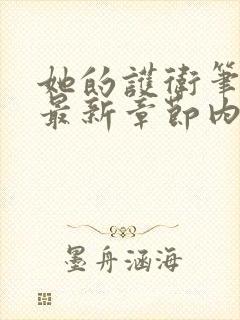 她的護衛筆
最新章節內
墨舟涵海